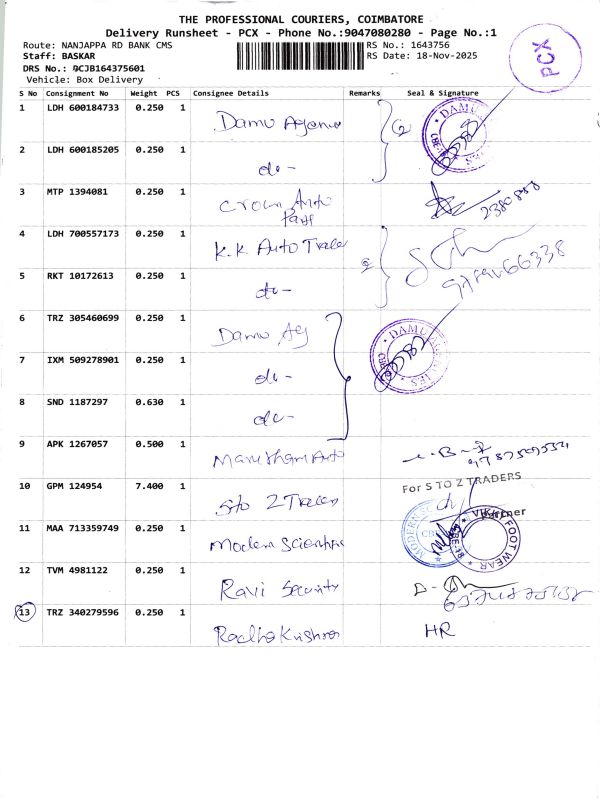 THE PROFESSIONAL COURIERS, COIMBATORE
Delivery Runsheet - PCX - Phone No.:9047080280 - Page No.:1
Route: NANJAPPA RD BANK CMS
RS No.: 1643756
Staff: BASKAR
RS Date: 18-Nov-2025
DRS No.: 9CJB164375601
Vehicle: Box Delivery
PCX
S No Consignment No Weight PCS Consignee Details Remarks Seal & Signature
1 LDH 600184733 0.250 1 Damu Agencie
DAMU
2 LDH 600185205 0.250 1 do-
3 MTP 1394081 0.250 1 Crown Auto
Parts
4 LDH 700557173 0.250 1 K.K Auto Trade
5 RKT 10172613 0.250 1 do-
6 TRZ 305460699 0.250 1 Damu Ag
DAMU AGENCIES
7 IXM 509278901 0.250 1 do-
8 SND 1187297 0.630 1 do-
9 APK 1267057 0.500 1 Marutham Auto
10 GPM 124954 7.400 1 S to Z Traders
For S TO Z TRADERS
Partner
11 MAA 713359749 0.250 1 Modern Scientific
FOOT WEAR
12 TVM 4981122 0.250 1 Ravi Security
13 TRZ 340279596 0.250 1 Radha Krishna
HR